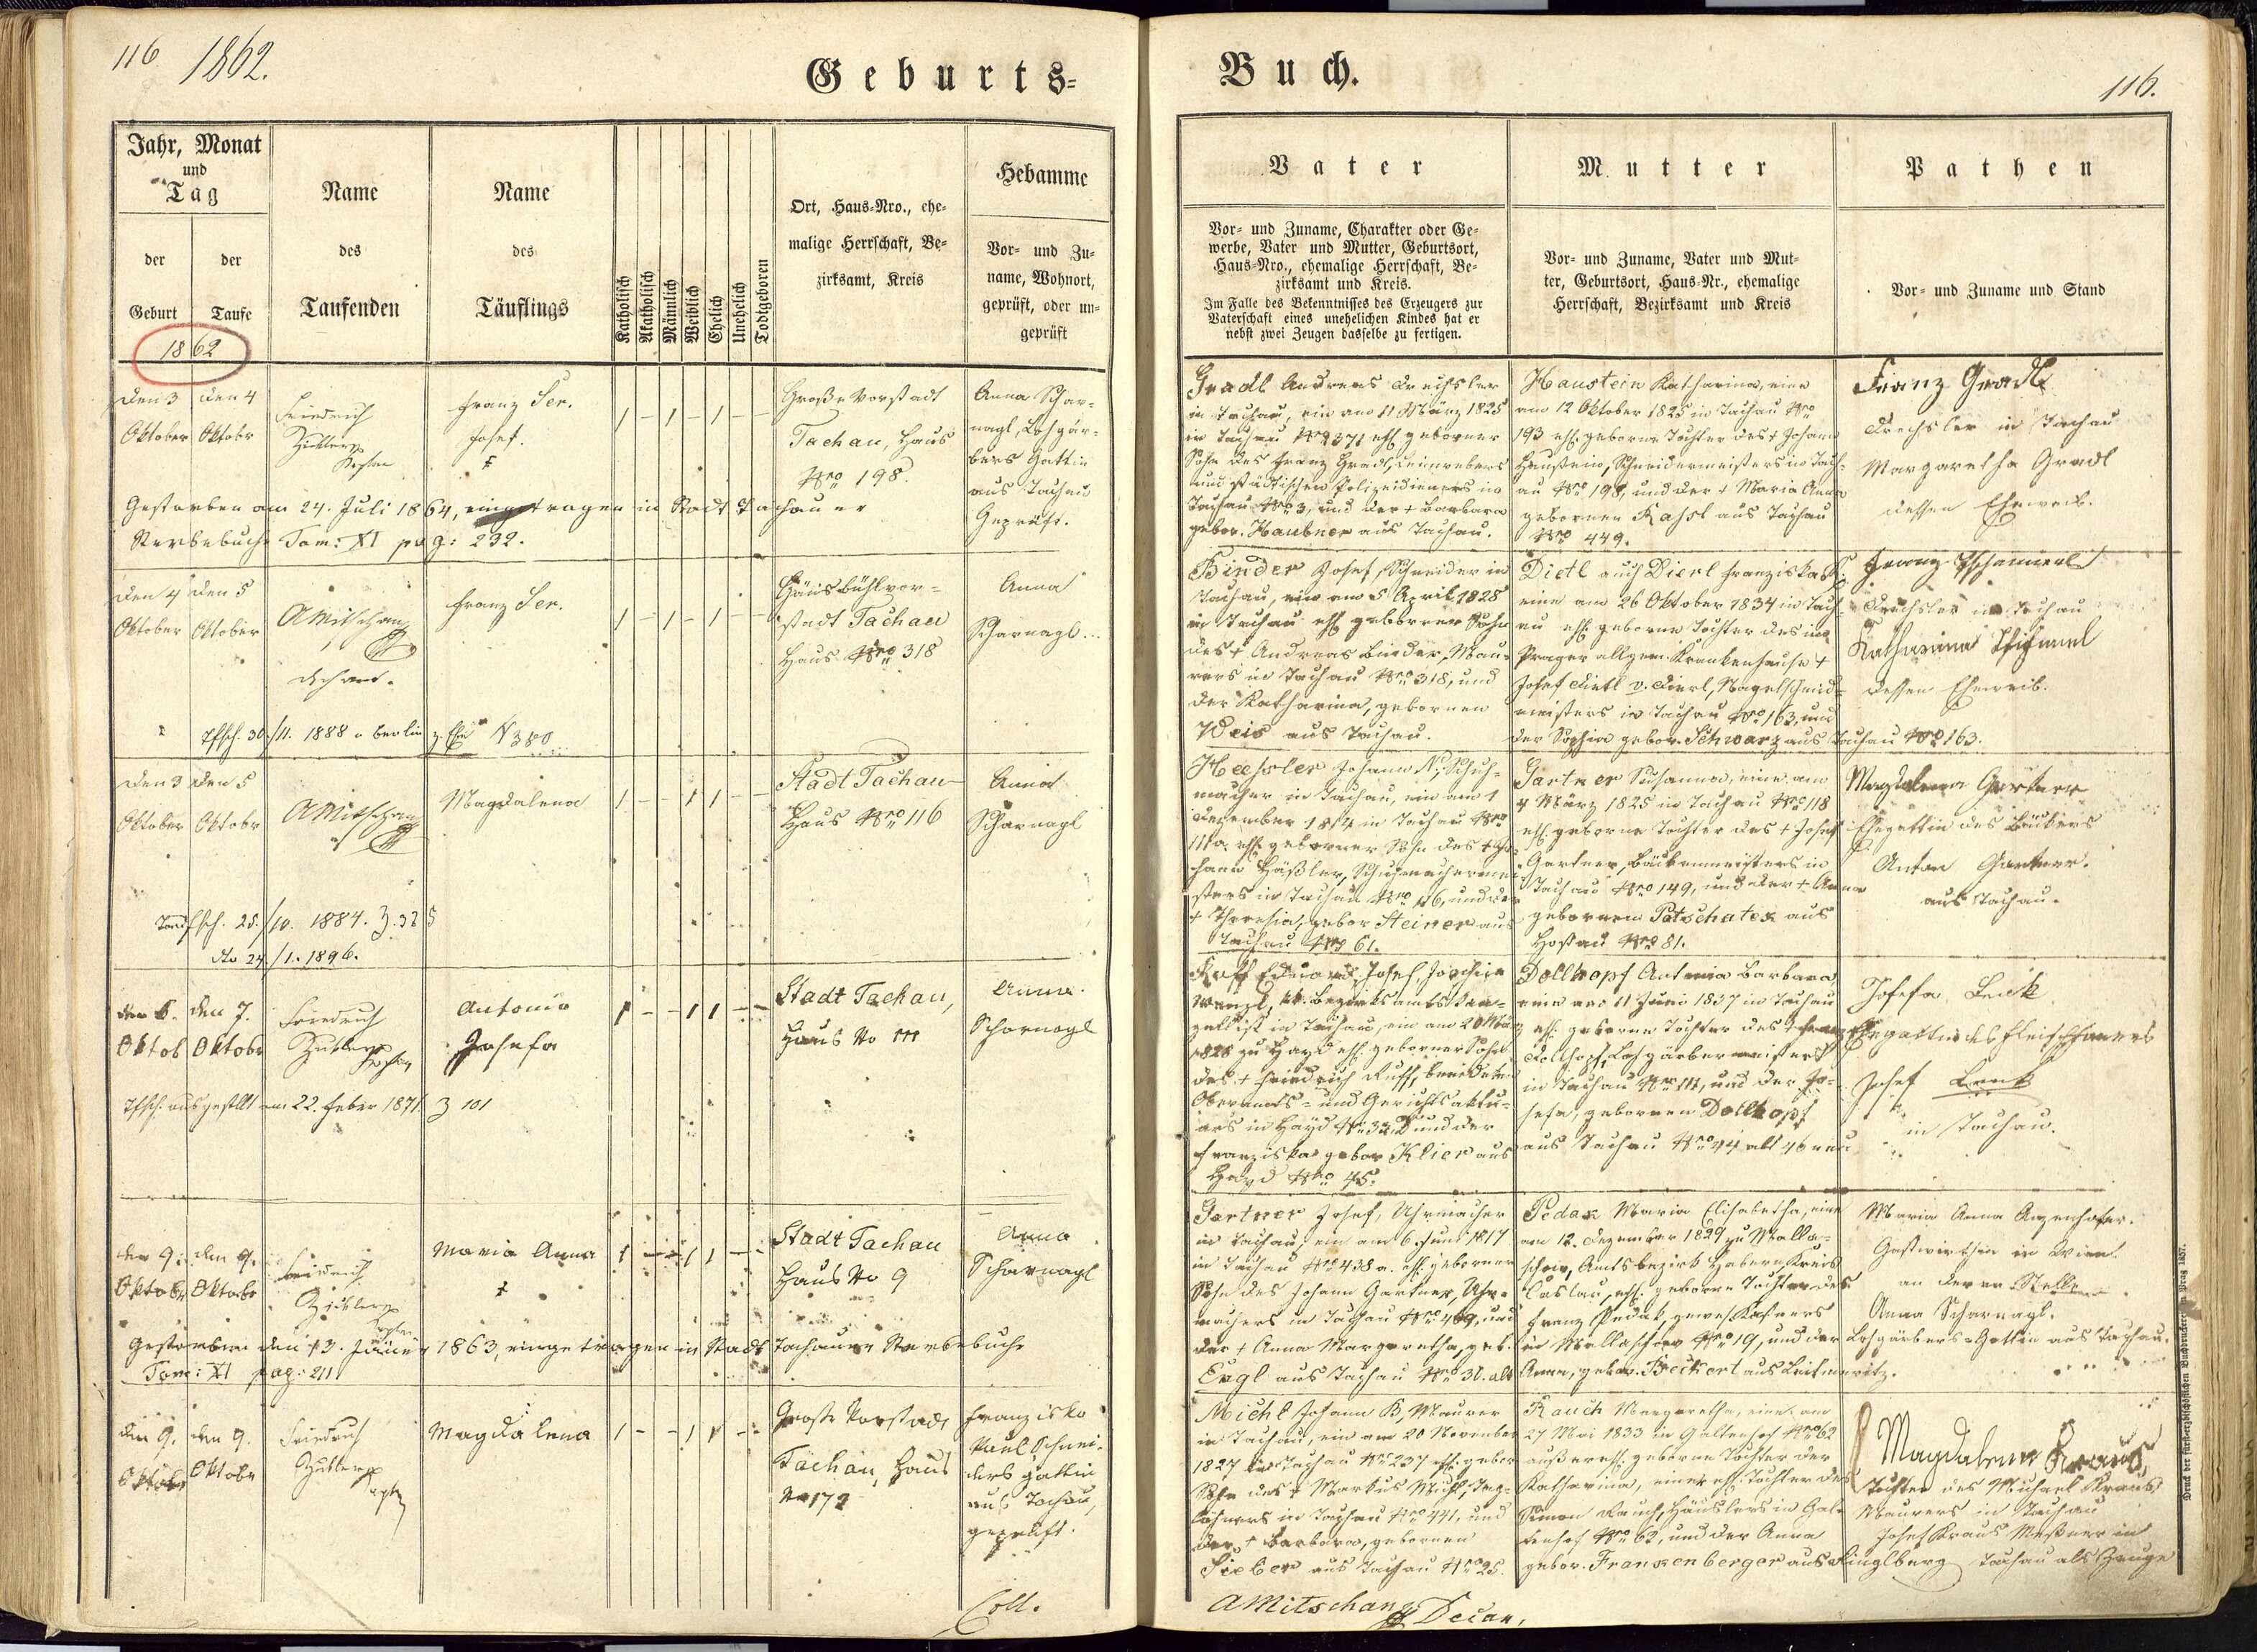 116 1862.
Geburts=
Buch.
116.
Jahr, Monat
und
Tag
der
Geburt
der
Taufe
1862
Name
des
Taufenden
Name
des
Täuflings
Katholisch
Akatholisch
Männlich
Weiblich
Ehelich
Unehelich
Todtgeboren
Ort, Haus=Nro., ehe=
malige Herrschaft, Be=
zirksamt, Kreis
Hebamme
Vor= und Zu=
name, Wohnort,
geprüft, oder un=
geprüft
Vater
Vor= und Zuname, Charakter oder Ge=
werbe, Vater und Mutter, Geburtsort,
Haus=Nro., ehemalige Herrschaft, Be=
zirksamt und Kreis.
Im Falle des Bekenntnisses des Erzeugers zur
Vaterschaft eines unehelichen Kindes hat er
nebst zwei Zeugen dasselbe zu fertigen.
Mutter
Vor= und Zuname, Vater und Mut=
ter, Geburtsort, Haus=Nr., ehemalige
Herrschaft, Bezirksamt und Kreis
Pathen
Vor= und Zuname und Stand
den 3 den 4
Oktober Oktobr
Friedrich
Franz Ser.
Josef.
1 - 1 - 1 - -
Große Vorstadt
Tachau, Haus
Nro 198.
Anna Schar=
nagl, Lohgär=
bers Gattin
aus Tachau
Geprüft.
Gradl Andreas Drechsler
in Tachau, ein am 11 März 1825
in Tachau Nro 371 ehl. geborner
Sohn des Franz Gradl,
und städtischen Polizeidieners in
Tachau Nro 3, und der + Barbara
gebor. Haubner aus Tachau.
Haustein Katharina, eine
am 12 Oktober 1825 in Tachau Nro
193 ehl. geborne Tochter des + Johann
Haustein, Schneidermeisters in Tach=
au Nro 198, und der + Maria Anna
gebornen Kahsl aus Tachau
Nro 449.
Franz Gradl
Drechsler in Tachau
Margaretha Gradl
dessen Eheweib.
Gestorben am 24. Juli 1864, eingetragen in Stadt Tachauer
Sterbebuche Tom: XI pag: 232.
den 4 den 5
Oktober Oktober
AMitschang
Dechant.
Franz Ser.
1 - 1 - 1 - -
stadt Tachau
Haus Nro 318
Anna
Scharnagl
Binder Josef, Schneider in
Tachau, ein am 5 April 1828
in Tachau ehl. geborner Sohn
des + Andreas Binder, Mau=
rers in Tachau Nro 318, und
der Katharina, gebornen
Weis aus Tachau.
Dietl auch Dierl Franziska
eine am 26 Oktober 1834 in Tach=
au ehl. geborne Tochter des im
Prager allgem. Krankenhause +
Josef Dietl v. Dierl, Nagelschmid=
meisters in Tachau Nro 163, und
der Sophia gebor. Schwarz aus Tachau Nro 163.
Drechsler in Tachau
dessen Eheweib.
Tfsch. 30./11. 1888 n Berlin z. Ehe N 380
den 3 den 5
Oktober Oktobr
AMitschang
Magdalena
1 - - 1 1 - -
Stadt Tachau
Haus Nro 116
Anna
Scharnagl
Heeßler Johann N., Schuh=
macher in Tachau, ein am 1
Dezember 1814 in Tachau Nro
ehl. geborner Sohn des + Jo=
hann Häßler, Schuhmachermei=
sters in Tachau Nro 116, und der
+ Theresia, gebor. Steiner aus
Tachau Nro 61.
Gartner Susanna, eine am
4 März 1825 in Tachau Nro 118
ehl. geborne Tochter des + Josef
Gartner, Bäckermeisters in
Tachau Nro 149, und der + Anna
gebornen Patschatex aus
Hostau Nro 81.
Magdalena Gartner
Ehegattin des Bäckers
Anton Gartner.
aus Tachau.
Taufsch. 25./10. 1884. Z. 325
dto 24./1. 1896.
den 6. den 7.
Oktob Oktobr
Friedrich
Antonia
Josefa
1 - - 1 1 - -
Stadt Tachau,
Haus No 111
Anna
Scharnagl
Ruff Eduard Josef Joachim
Wenzl, kk. Bezirksamts Kan=
zellist in Tachau, ein am 20 März
1828 zu Hayd ehl. geborner Sohn
des + Friedrich Ruff,
Oberamts= und Gerichtsaktu=
ars in Hayd Nro 32, und der
Franziska gebor Klier aus
Hayd Nro 45.
Dollhopf Antonia Barbara
eine am 11 Juni 1837 in Tachau
ehl. geborne Tochter des Franz
Dollhopf, Lohgärbermeisters
in Tachau Nro 111, und der Jo=
sefa, gebornen Dollhopf
aus Tachau Nro 44 alt 46 neu
Josefa Lenk
Ehegattin des Fleischhauers
Josef Lenk
in Tachau.
Tfsch. ausgestellt am 22. Feber 1871 Z 101
den 9. den 9.
Oktobr Oktobr
Friedrich
Maria Anna
1 - - 1 1 - -
Stadt Tachau
Haus No 9
Anna
Scharnagl
Gartner Josef, Uhrmacher
in Tachau, ein am 6. Juni 1817
in Tachau Nro 438 a. ehl. geborner
Sohn des Johann Gartner, Uhr=
machers in Tachau Nro 469, und
der + Anna Margaretha, geb.
Engl aus Tachau Nro 30. alt
Pedak Maria Elisabetha, eine
am 12. Dezember 1829 zu Malla=
schow, Amtsbezirk Habern, Kreis
Caslau, ehl. geborne Tochter des
Franz Pedak,
in Mallaschow Nro 19, und der
Anna, gebor. Beckert aus Leitmeritz.
Maria Anna
Gastwirthin in Wien.
an deren Stelle
Anna Scharnagl.
Lohgärbers=Gattin aus Tachau.
Gestorben den 13. Jäner 1863, eingetragen in Stadt Tachauer Sterbebuche
Tom: XI pag: 211
den 9. den 9.
Oktobr Oktobr
Friedrich
Magdalena
1 - - 1 1 - -
Große Vorstadt
Tachau, Haus
No 172
Franziska
Paul, Schnei=
ders Gattin
aus Tachau,
geprüft.
Michl Johann B, Maurer
in Tachau, ein am 20 November
1827 in Tachau Nro 237 ehl. gebor
Sohn des + Markus Michl, Tag=
löhners in Tachau Nro 441, und
der + Barbara, gebornen
Sieber aus Tachau Nro 25.
Rauch Margaretha, eine am
27 Mai 1833 in Galtenhof Nro 62
außerehl. geborne Tochter der
Katharina, einer ehl. Tochter des
Simon Rauch, Häuslers in Gal=
tenhof Nro 62, und der Anna
gebor. Franzenberger aus Ringlberg
Magdalena Kraus,
Tochter des Michael Kraus
Maurers in Tachau
Josef Kraus Meßner in
Tachau als Zeuge
Coll.
AMitschang Decan.
Druck der fürst=erzbischöflichen Buchdruckerei in Prag 1857.